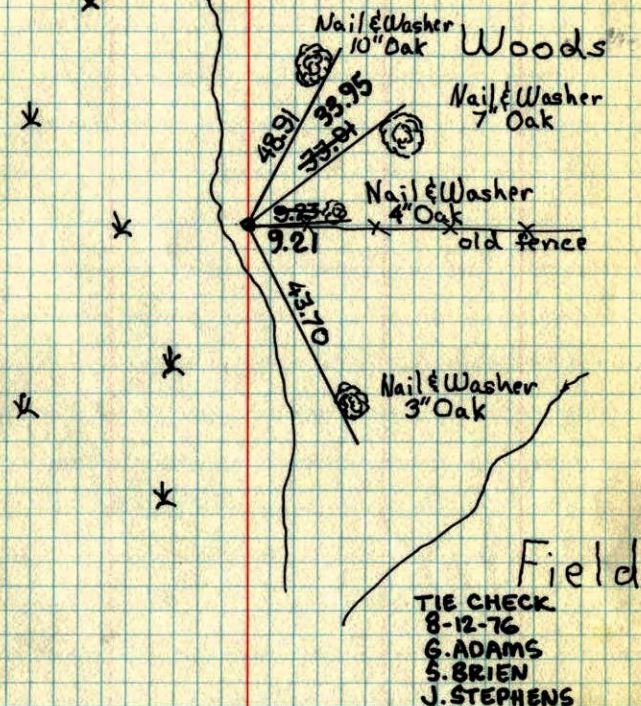 Nail & Washer
10" Oak
Woods
48.91
33.95
33.91
Nail & Washer
7" Oak
Nail & Washer
4" Oak
9.23
9.21
old fence
43.70
Nail & Washer
3" Oak
Field
TIE CHECK
8-12-76
G. ADAMS
S. BRIEN
J. STEPHENS